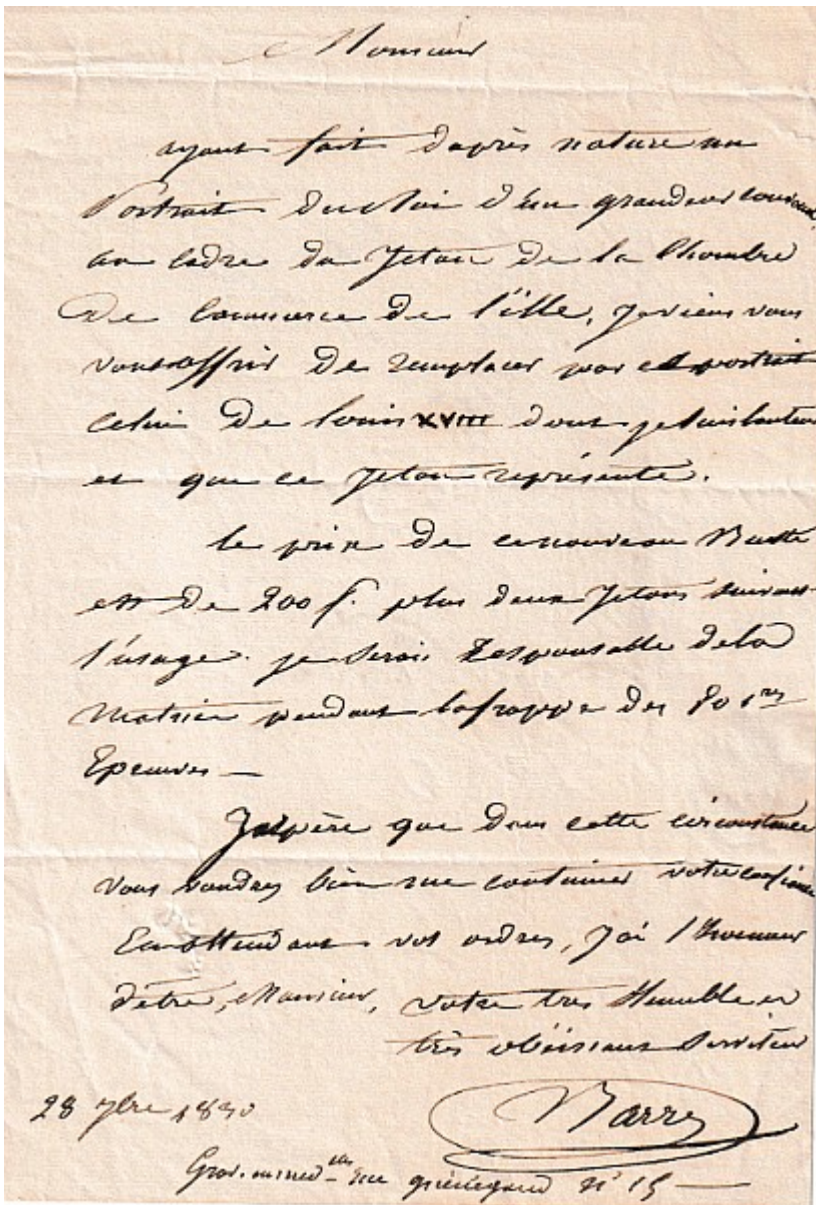 Monsieur
ayant fait daprès nature un
Portrait du Roi d'un grandeur convenable
au Cadre du Jeton de la Chambre
De Commerce de Lille, Je viens vous
vous offrir De remplacer par ce portrait
celui De louis XVIII dont je suis lauteur
et que ce Jeton représente.
le prix de ce nouveau Buste
est De 200 f. plus deux Jetons suivant
l'usage. je serai Responsable de la
Matrice pendant la frappe des 80 1res
Epreuves —
J'espère que dans cette circonstance
vous voudrez bien me continuer votre confiance
En attendant vos ordres, J'ai l'honneur
d'être, Monsieur, votre très humble et
très obéissant Serviteur
28 7bre 1830
Barre
Grav. en med.lles rue guénégaud n° 15 —